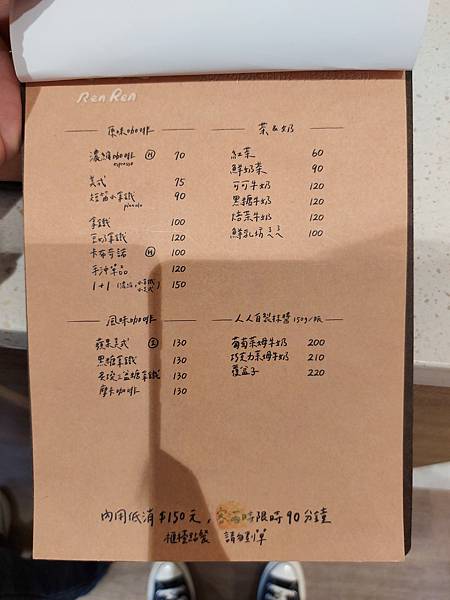 Ren Ren
原味咖啡
濃縮咖啡 Ⓗ 70
espresso
美式 75
短笛小拿鐵 90
piccolo
拿鐵 100
豆奶拿鐵 120
卡布奇諾 Ⓗ 100
手沖單品 120
1+1 150
風味咖啡
蘋果美式 130
黑糖拿鐵 130
130
摩卡咖啡 130
茶&奶
紅茶 60
鮮奶茶 90
可可牛奶 120
黑糖牛奶 120
焙茶牛奶 120
鮮乳坊 100
人人自製抹醬 150g/瓶
葡萄萊姆牛奶 200
巧克力萊姆牛奶 210
覆盆子 220
內用低消$150元，客滿時限時90分鐘
櫃檯點餐 請勿劃單